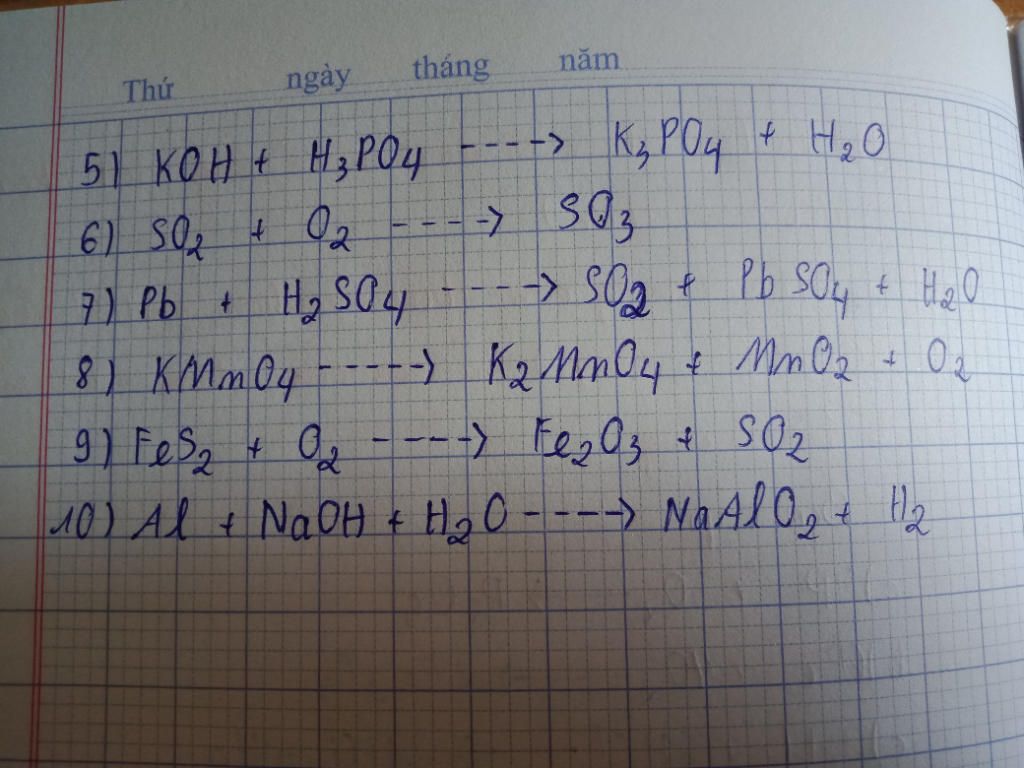 Thứ ngày tháng năm
5) KOH + H₃PO₄ ----> K₃PO₄ + H₂O
6) SO₂ + O₂ ----> SO₃
7) Pb + H₂SO₄ ----> SO₂ + PbSO₄ + H₂O
8) KMnO₄ -----> K₂MnO₄ + MnO₂ + O₂
9) FeS₂ + O₂ ----> Fe₂O₃ + SO₂
10) Al + NaOH + H₂O ----> NaAlO₂ + H₂